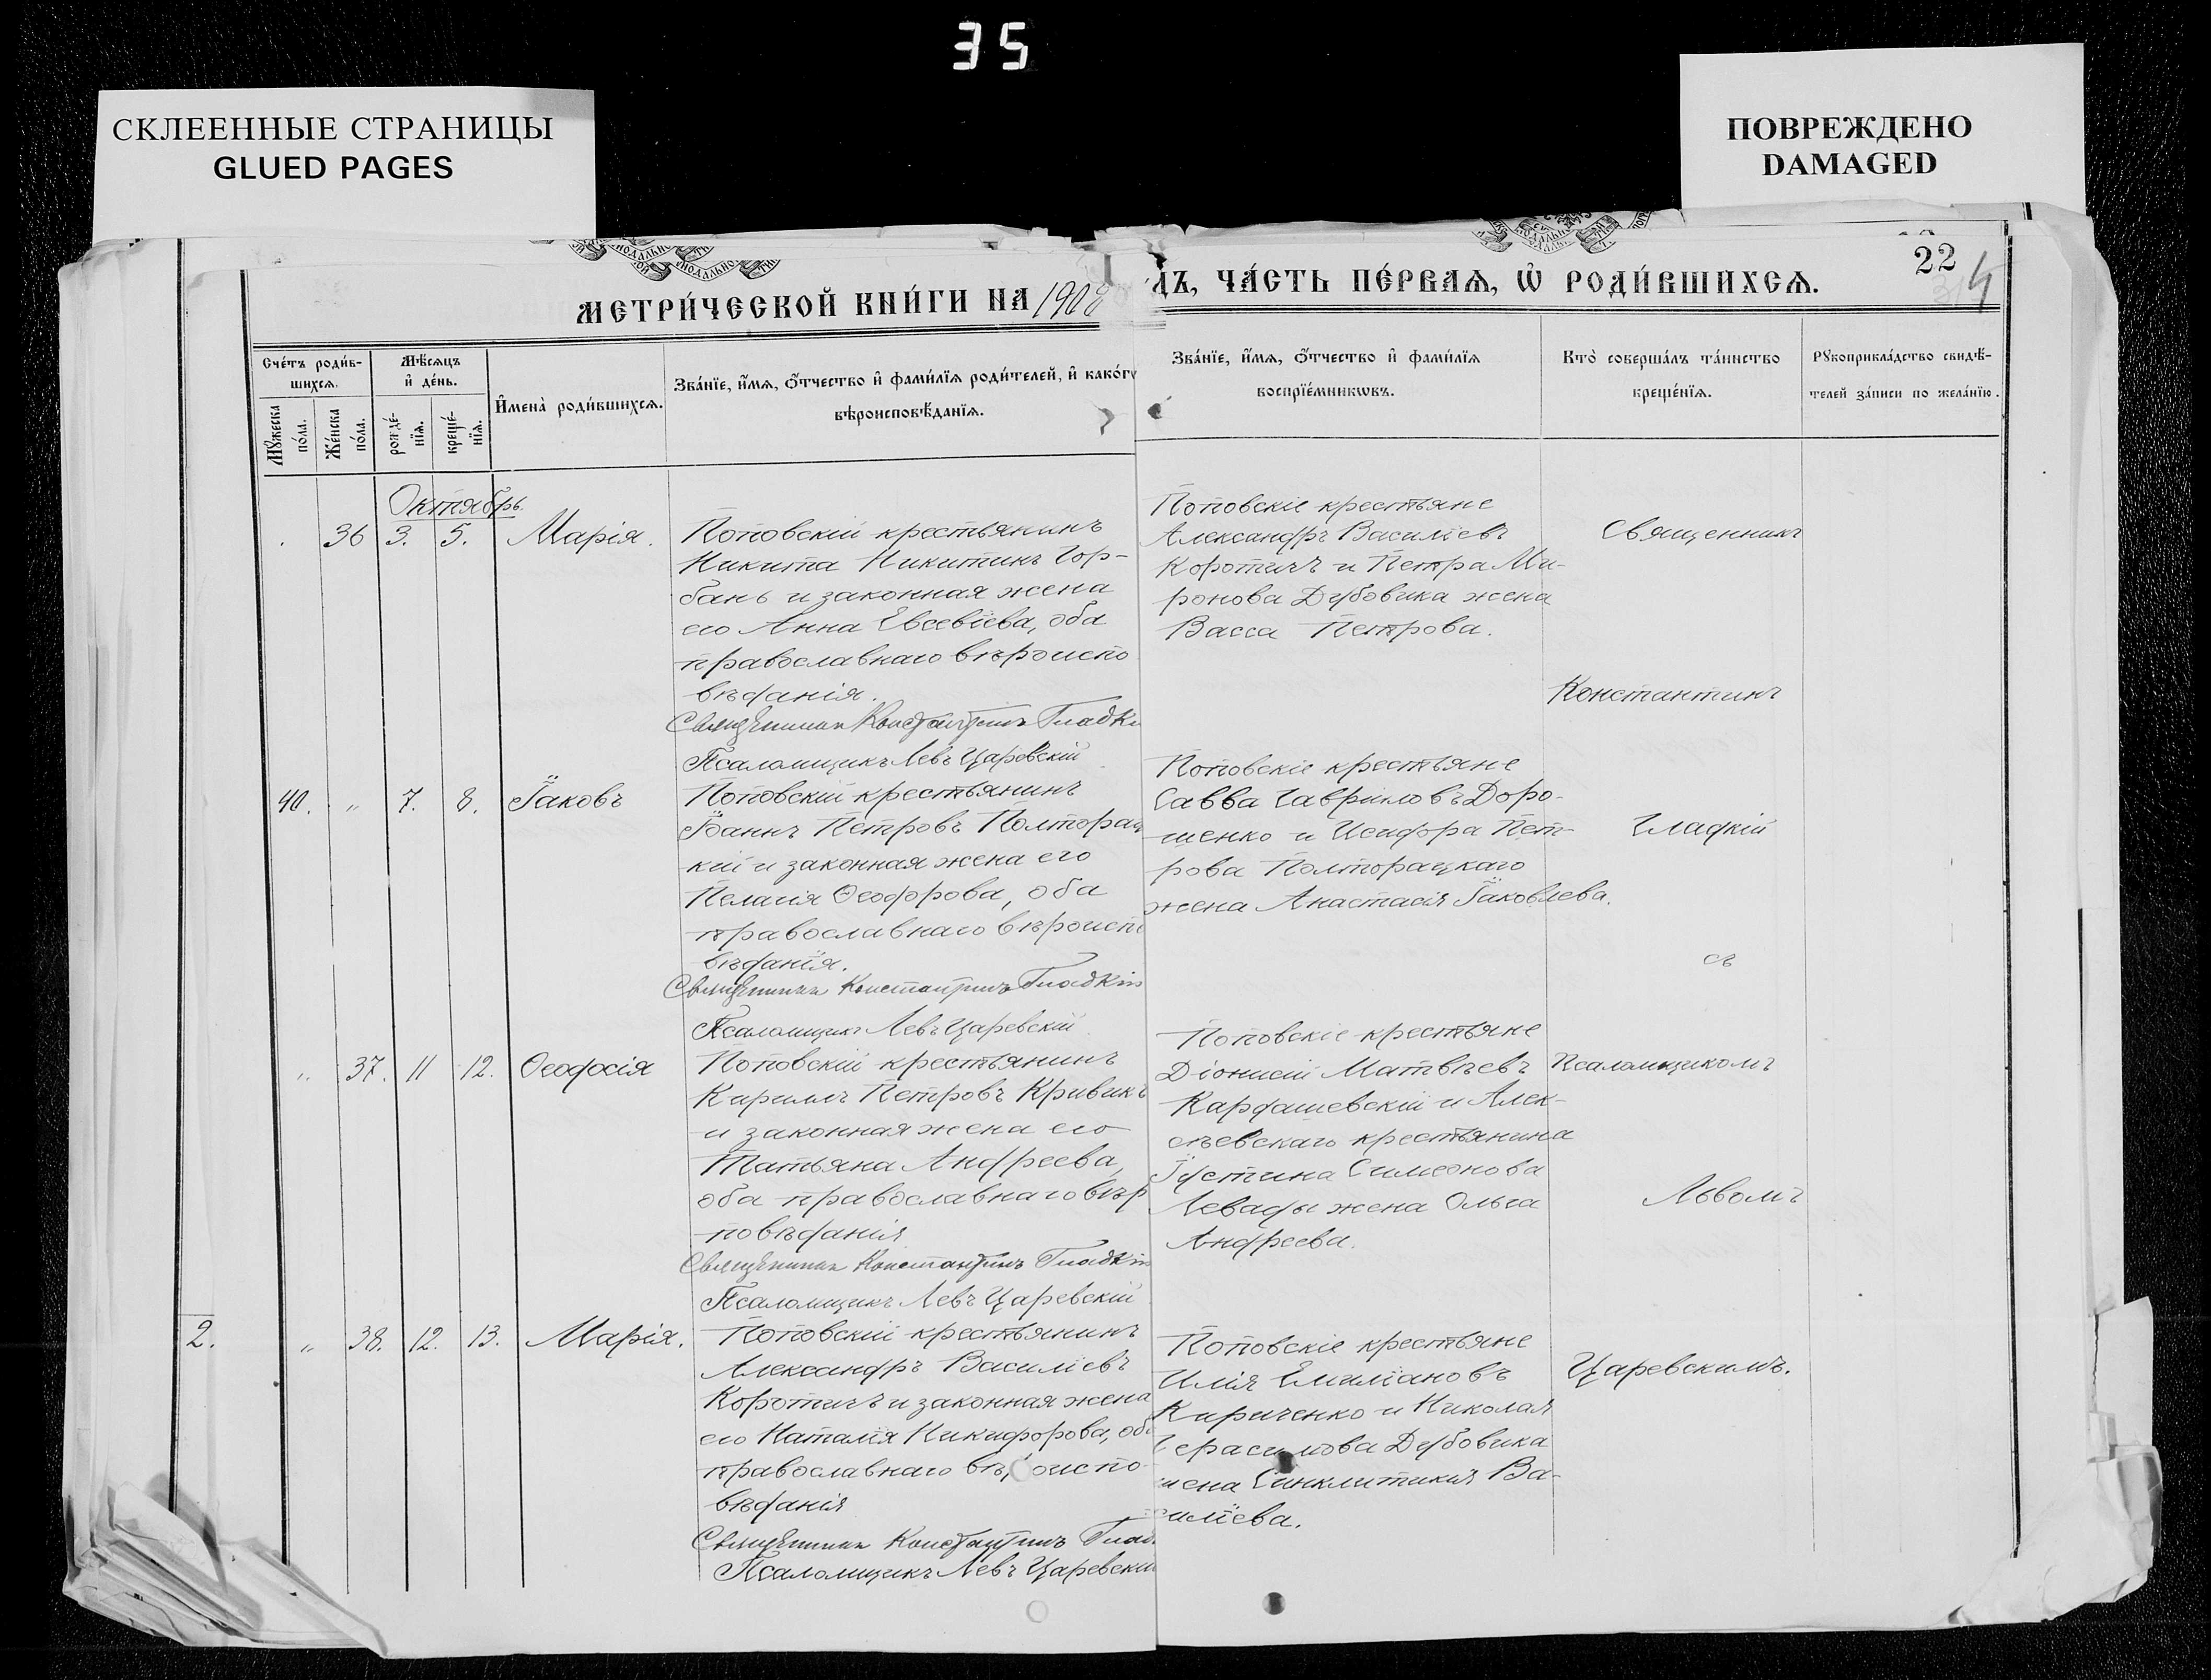 35
СКЛЕЕННЫЕ СТРАНИЦЫ
GLUED PAGES
ПОВРЕЖДЕНО
DAMAGED
22
4
МЕТРИ́ЧЕСКОЙ КНИ́ГИ НА 1908
ДЪ, ЧА́СТЬ ПЕ́РВАѦ, Ѡ҆ РОДИ́ВШИХСѦ.
Сче́тъ роди́в-
шихсѧ.
Мѣ́сѧцъ
и҆ де́нь.
Мꙋ́жеска
по́ла.
Же́нска
по́ла.
рожде́-
нїѧ.
креще́-
нїѧ.
И҆мена̀ роди́вшихсѧ.
Зва́нїе, и҆́мѧ, ѻ҆́тчество и҆ фами́лїѧ роди́телей, и҆ како́гѡ
вѣроисповѣ́данїѧ.
Зва́нїе, и҆́мѧ, ѻ҆́тчество и҆ фами́лїѧ
воспрїе́мникѡвъ.
Кто̀ соверша́лъ та́инство
креще́нїѧ.
Рꙋкоприкла́дство свидѣ́-
телей за́писи по жела́нїю.
Октябрь.
36 3. 5. Марія.
Поповскій крестьянинъ
Никита Никитинъ Гор-
бань и законная жена
его Анна Евсевіева, оба
православнаго вѣроиспо
вѣданія.
Священникъ Константинъ Гладкі
Псаломщикъ Левъ Царевскій
Поповскіе крестьяне
Александръ Василіевъ
Коротичъ и Петра Ми-
ронова Дубовика жена
Васса Петрова.
Священникъ
Константинъ
40. " 7. 8. Іаковъ
Поповскій крестьянинъ
Іоаннъ Петровъ Полторац
кій и законная жена его
Пелагія Ѳеодорова, оба
православнаго вѣроиспо
вѣданія.
Священникъ Константинъ Гладкій
Псаломщикъ Левъ Царевскій
Поповскіе крестьяне
Савва Гавріиловъ Доро-
шенко и Исидора Пет-
рова Полторацкаго
жена Анастасія Іаковлева.
Гладкій
съ
" 37. 11 12. Ѳеодосія
Поповскій крестьянинъ
Кириллъ Петровъ Кривикъ
и законная жена его
Татьяна Андреева,
оба православнаго вѣр
повѣданія
Священникъ Константинъ Гладкій
Псаломщикъ Левъ Царевскій
Поповскіе крестьяне
Діонисій Матвѣевъ
Кардашевскій и Алек-
сѣевскаго крестьянина
Іустина Симеонова
Левады жена Ольга
Андреева.
Псаломщикомъ
Львомъ
2.
" 38. 12. 13. Марія.
Поповскій крестьянинъ
Александръ Василіевъ
Коротичъ и законная жена
его Наталія Никифорова, оба
православнаго вѣроиспо
вѣданія
Священникъ Константинъ Глад
Псаломщикъ Левъ Царевскій
Поповскіе крестьяне
Илія Емиліановъ
Кириченко и Николая
Герасимова Дубовика
жена Синклитикія Ва-
силіева.
Царевскимъ.